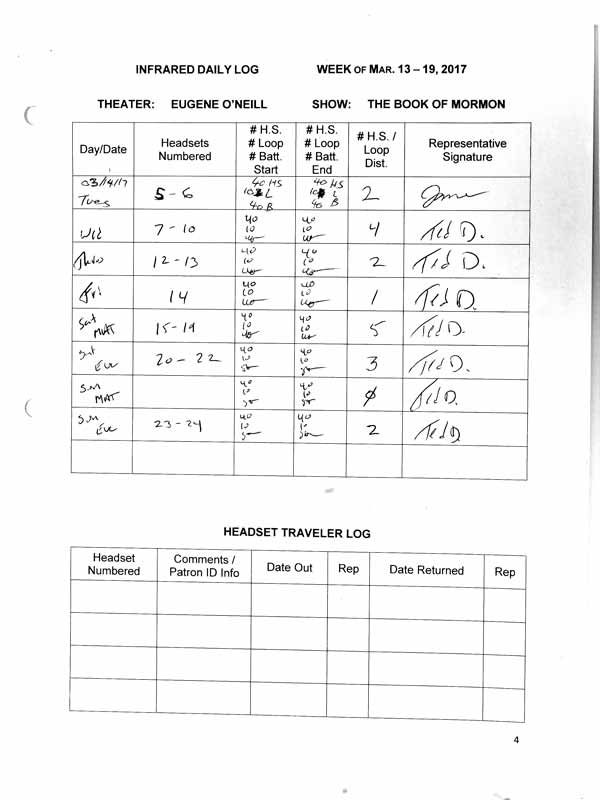 INFRARED DAILY LOG WEEK OF MAR. 13 – 19, 2017
THEATER: EUGENE O'NEILL SHOW: THE BOOK OF MORMON
Day/Date Headsets Numbered # H.S. # Loop # Batt. Start # H.S. # Loop # Batt. End # H.S. / Loop Dist. Representative Signature
03/14/17 Tues 5 - 6 40 HS 10 L 40 B 40 HS 10 L 40 B 2
Wed 7 - 10 40 10 40 40 10 40 4 Ted D.
Thurs 12 - 13 40 10 40 40 10 40 2 Ted D.
Fri 14 40 10 40 40 10 40 1 Ted D.
Sat MAT 15 - 19 40 10 40 40 10 40 5 Ted D.
Sat Eve 20 - 22 40 10 40 10 3 Ted D.
Sun MAT 40 10 40 10 0 Ted D.
Sun Eve 23 - 24 40 10 40 10 2 Ted D
HEADSET TRAVELER LOG
Headset Numbered Comments / Patron ID Info Date Out Rep Date Returned Rep
4